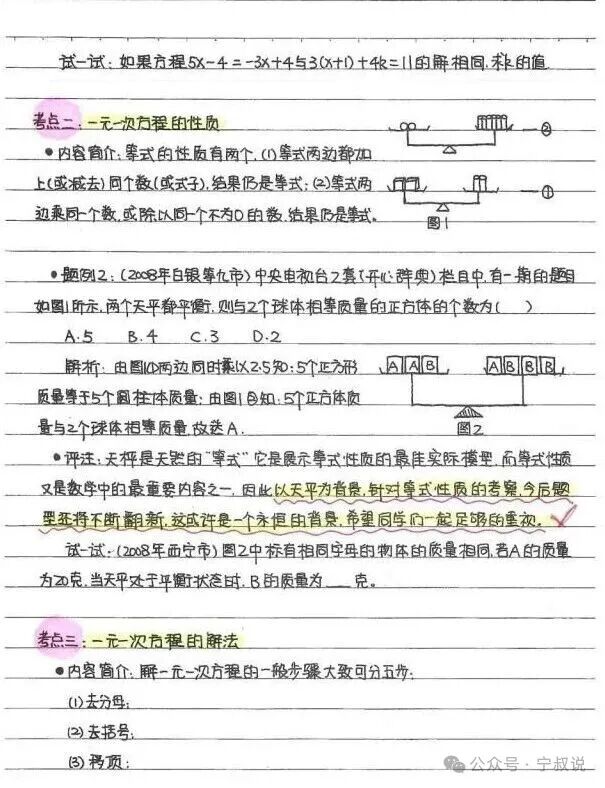 试一试:如果方程5x-4=-3x+4与3(x+1)+4k=11的解相同,求k的值
考点二:一元一次方程的性质
②
•内容简介:等式的性质有两个,(1)等式两边都加
上(或减去)同个数(或式子),结果仍是等式;(2)等式两
①
边乘同一个数,或除以同一个不为0的数,结果仍是等式。
图1
•题例2:(2008年白银等九市)中央电视台2套《开心辞典》栏目中,有一期的题目
如图1所示,两个天平都平衡,则与2个球体相等质量的正方体的个数为( )
A.5 B.4 C.3 D.2
解析:由图1①两边同时乘以2.5知:5个正方形
A A B A B B B
质量等于5个圆柱体质量;由图1②知:5个正方体质
量与2个球体相等质量,故选A.
图2
•评注:天枰是天然的“等式”它是展示等式性质的最佳实际模型,而等式性质
又是数学中的最重要内容之一,因此以天平为背景,针对等式性质的考察,今后题
型还将不断翻新,这或许是一个永恒的背景,希望同学们一起足够的重视。
试一试:(2008年西宁市)图2中标有相同字母的物体的质量相同,若A的质量
为20克,当天平处于平衡状态时,B的质量为___克。
考点三:一元一次方程的解法
•内容简介:解一元一次方程的一般步骤大致可分五步:
(1)去分母;
(2)去括号;
(3)移项;
公众号·宁叔说